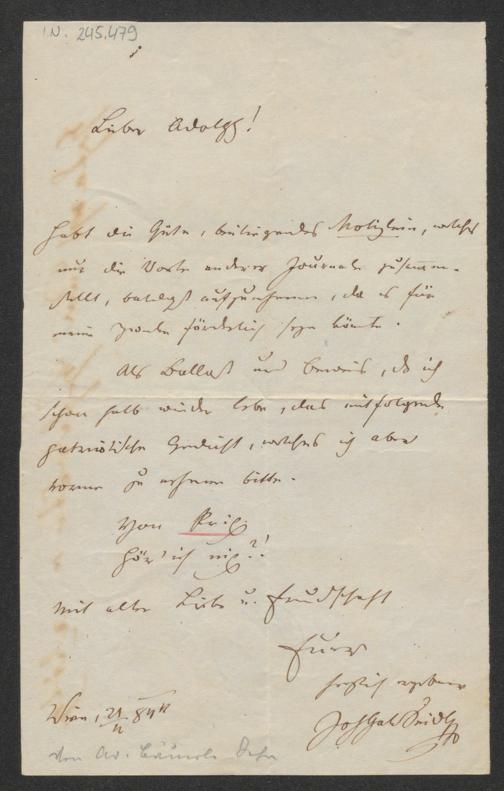 I.N. 245.479
Lieber Adolph!
Habt die Güte, beiliegendes Notizlein, welches
nur die Worte anderer Journale zusammen-
stellt, baldigst aufzunehmen, da es für
meine Zwecke förderlich seyn könnte.
Als Ballast und Beweis, daß ich
schon halb wieder lebe, das mitfolgende
patriotische Gedicht, welches ich aber
vorne zu nehmen bitte.
Von Prix
hör' ich nix?!
Mit aller Liebe u. Freundschaft
Euer
herzlich ergebener
Joh Gab Seidl
Wien, 21
von Ad. Bäuerle